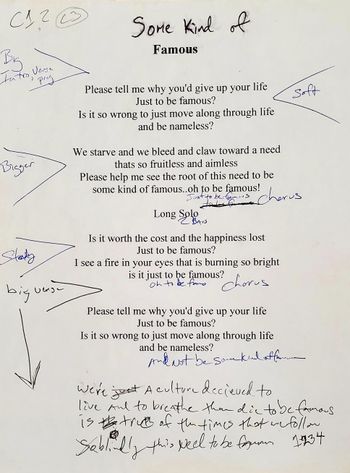 C1?
Some Kind of
Famous
Big
Intro, Verse
Please tell me why you'd give up your life
Just to be famous?
Soft
Is it so wrong to just move along through life
and be nameless?
We starve and we bleed and claw toward a need
thats so fruitless and aimless
Bigger
Please help me see the root of this need to be
some kind of famous..oh to be famous!
Just to be famous
chorus
Long Solo
2 Bars
Is it worth the cost and the happiness lost
Just to be famous?
Steady
I see a fire in your eyes that is burning so bright
is it just to be famous?
oh to be famo
chorus
big verse
Please tell me why you'd give up your life
Just to be famous?
Is it so wrong to just move along through life
and be nameless?
and not be some kind of famous
We're just A culture decieved to
live and to breathe then die to be famous
is the truth of the times that we follow
So blindly this need to be famous
1934